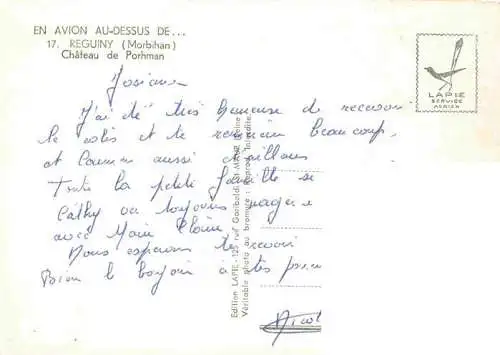 EN AVION AU-DESSUS DE...
17. REGUINY (Morbihan)
Château de Porhman
LAPIE
SERVICE
AERIEN
Josiane
J'ai été très heureuse de recevoir
le colis et te remercie beaucoup
et aussi
Toute la petite famille se
Cathy va toujours
avec Marie Claire
Nous espérons te revoir
Bien le bonjour à tes
Edition LAPIE - 129 rue Garibaldi, ST MAUR (Seine)
Véritable photo au bromure - Reprod. Interdite